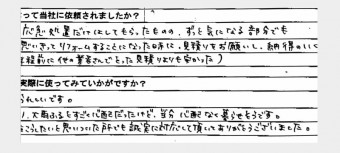 って当社に依頼されましたか？
応急処置だけにしてもらったものの、ずっと気になる部分でも
思いきってリフォームすることになった時に、見積りをお願いし、納得のいく
以前に他の業者さんでとった見積りよりも安かった）
実際に使ってみていかがですか？
うれしいです。
大雨ふるとすごく心配だったけど、当分心配なく暮らせそうです。
こうしたいと思いついた所でも誠実に対応して頂いてありがとうございました。